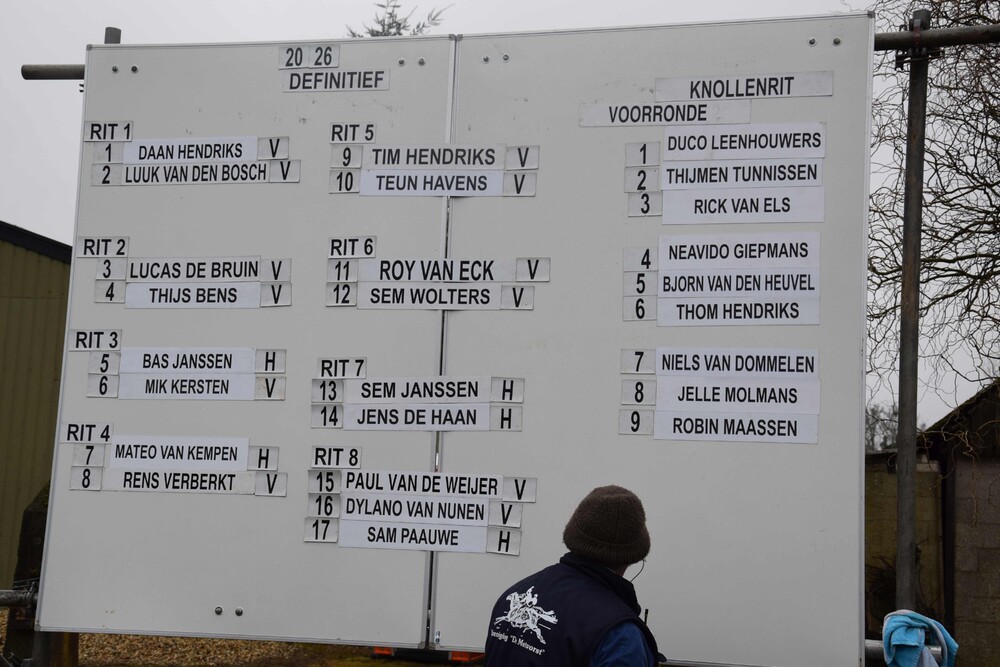 20 26
DEFINITIEF
RIT 1
1 DAAN HENDRIKS V
2 LUUK VAN DEN BOSCH V
RIT 2
3 LUCAS DE BRUIN V
4 THIJS BENS V
RIT 3
5 BAS JANSSEN H
6 MIK KERSTEN V
RIT 4
7 MATEO VAN KEMPEN H
8 RENS VERBERKT V
RIT 5
9 TIM HENDRIKS V
10 TEUN HAVENS V
RIT 6
11 ROY VAN ECK V
12 SEM WOLTERS V
RIT 7
13 SEM JANSSEN H
14 JENS DE HAAN H
RIT 8
15 PAUL VAN DE WEIJER V
16 DYLANO VAN NUNEN V
17 SAM PAAUWE H
KNOLLENRIT
VOORRONDE
1 DUCO LEENHOUWERS
2 THIJMEN TUNNISSEN
3 RICK VAN ELS
4 NEAVIDO GIEPMANS
5 BJORN VAN DEN HEUVEL
6 THOM HENDRIKS
7 NIELS VAN DOMMELEN
8 JELLE MOLMANS
9 ROBIN MAASSEN